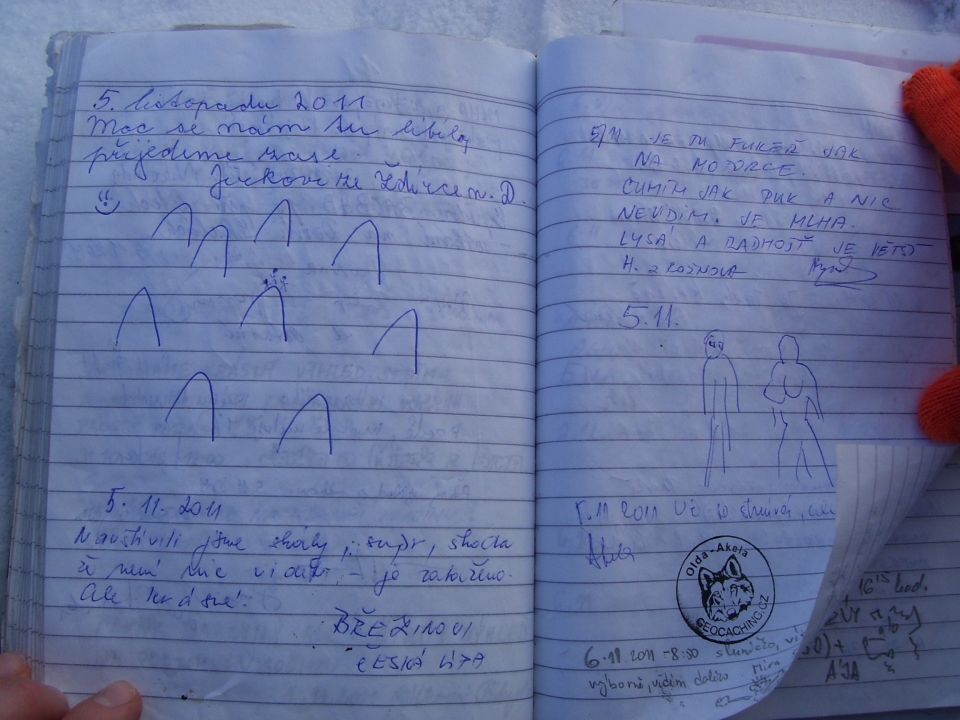 5. listopadu 2011
Moc se nám tu líbilo,
přijedeme zase.
Jirkovi ze Ždírce n. D.
5. 11. 2011
Navštívili jsme skály, supr, škoda
ži není nic vidět, - je zataženo.
Ale krásné.
BŘEZINOVI
ČESKÁ LÍPA
5/11 JE TU FUKEŘ JAK
NA MOTORCE.
ČUMÍM JAK PUK A NIC
NEVIDÍM. JE MLHA.
LYSÁ A RADHOŠŤ JE VĚTŠÍ
H. z ROŽNOVA
5.11.
5.11 2011 Už to stmívá, ale
Akela
Olda-Akela
GEOCACHING.CZ
6.11 2011 - 8:50 sluníčko,
výborně, vidím daleko Míra
16 15 hod.
+
ÁJA